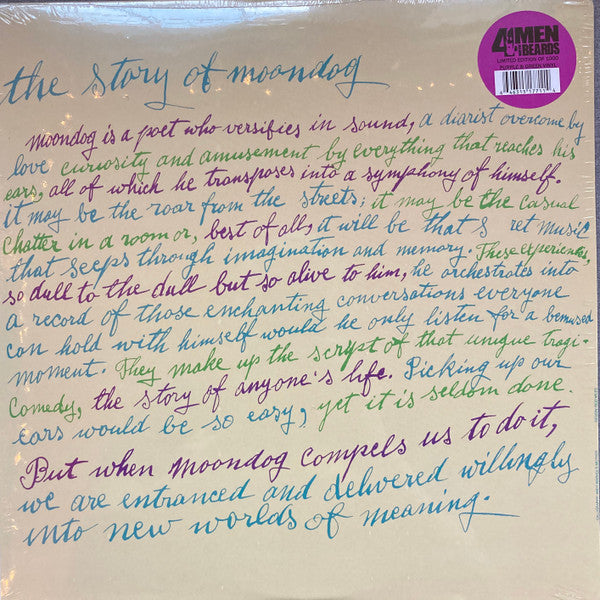 4 MEN
WITH
BEARDS
LIMITED EDITION OF 1000
PURPLE & GREEN VINYL
the story of moondog
Moondog is a poet who versifies in sound, a diarist overcome by
love curiosity and amusement by everything that reaches his
ears, all of which he transposes into a symphony of himself.
it may be the roar from the streets; it may be the casual
chatter in a room or, best of all, it will be that s ret music
that seeps through imagination and memory. These experiences,
so dull to the dull but so alive to him, he orchestrates into
a record of those enchanting conversations everyone
can hold with himself would he only listen for a bemused
moment. They make up the script of that unique tragi-
comedy, the story of anyone's life. Picking up our
ears would be so easy, yet it is seldom done.
But when Moondog compels us to do it,
we are entranced and delivered willingly
into new worlds of meaning.